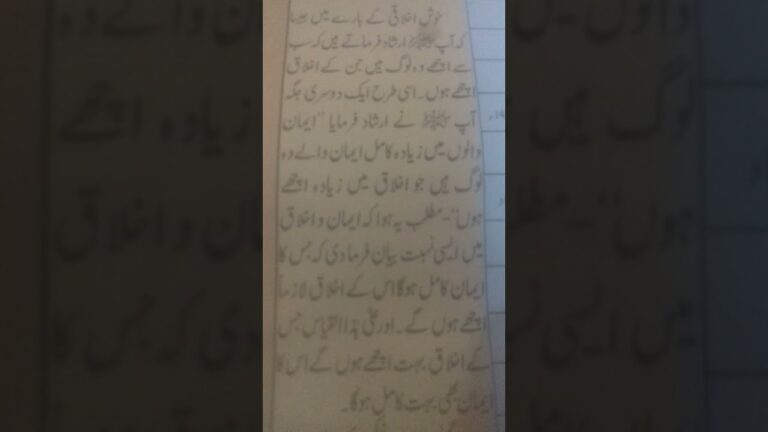 خوش اخلاقی کے بارے میں جیسا
کہ آپ ﷺ ارشاد فرماتے ہیں کہ سب
سے اچھے وہ لوگ ہیں جن کے اخلاق
اچھے ہوں۔ اسی طرح ایک دوسری جگہ
آپ ﷺ نے ارشاد فرمایا "ایمان
والوں میں زیادہ کامل ایمان والے وہ
لوگ ہیں جو اخلاق میں زیادہ اچھے
ہوں"۔ مطلب یہ ہوا کہ ایمان و اخلاق
میں ایسی نسبت بیان فرما دی کہ جس کا
ایمان کامل ہوگا اس کے اخلاق لازماً
اچھے ہوں گے۔ اور علیٰ ہذا القیاس جس
کے اخلاق بہت اچھے ہوں گے اس کا
ایمان بھی بہت کامل ہوگا۔